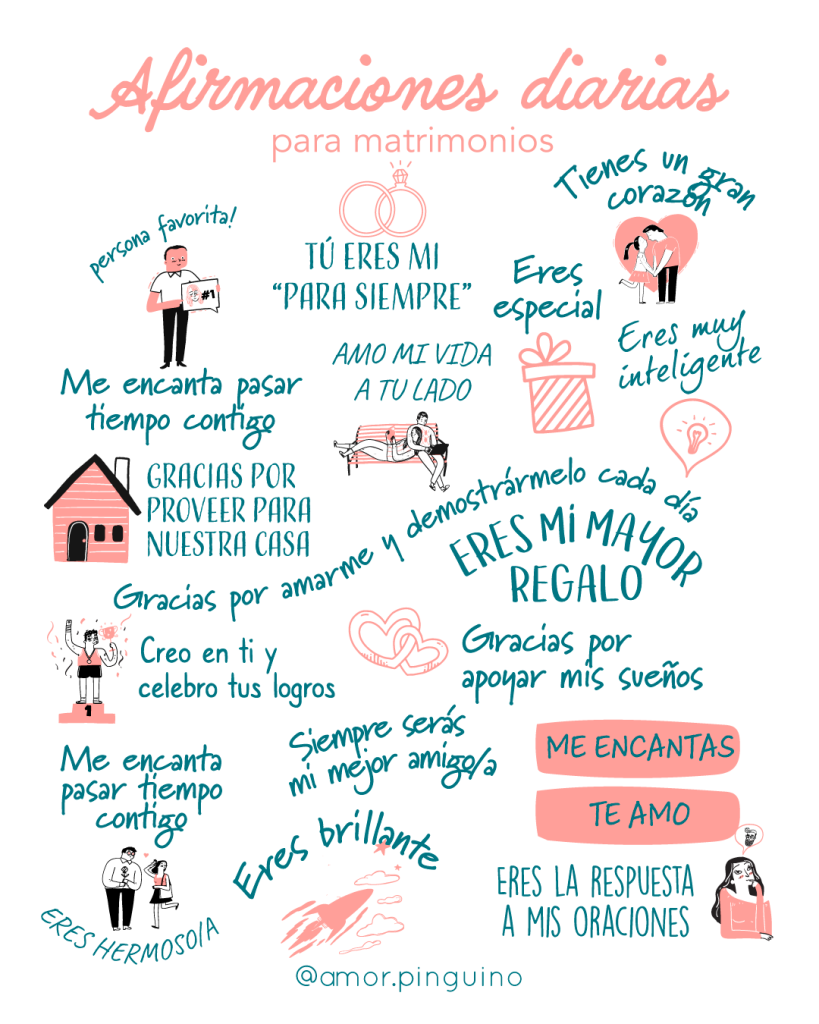 Afirmaciones diarias
para matrimonios
Tienes un gran
corazón
persona favorita!
#1
TÚ ERES MI
“PARA SIEMPRE”
Eres
especial
Eres muy
inteligente
AMO MI VIDA
A TU LADO
Me encanta pasar
tiempo contigo
GRACIAS POR
PROVEER PARA
NUESTRA CASA
Gracias por amarme y demostrármelo cada día
ERES MI MAYOR
REGALO
Creo en ti y
celebro tus logros
1
Gracias por
apoyar mis sueños
Siempre serás
mi mejor amigo/a
ME ENCANTAS
TE AMO
Me encanta
pasar tiempo
contigo
Eres brillante
ERES LA RESPUESTA
A MIS ORACIONES
ERES HERMOSO/A
@amor.pinguino